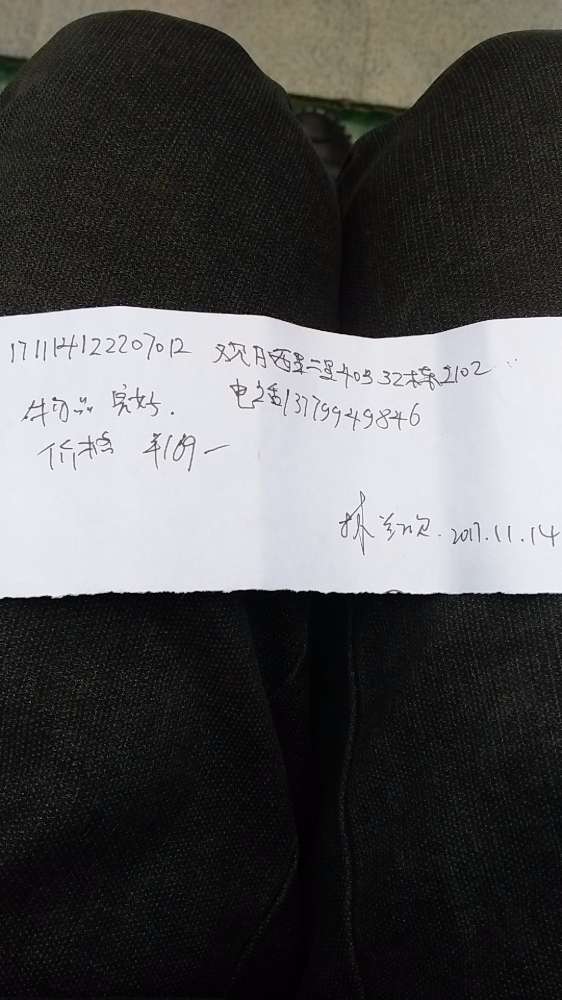 171114122207012 观月西里二里405 32栋2102
物品完好. 电话13779949846
价格 ¥189
林 2017.11.14